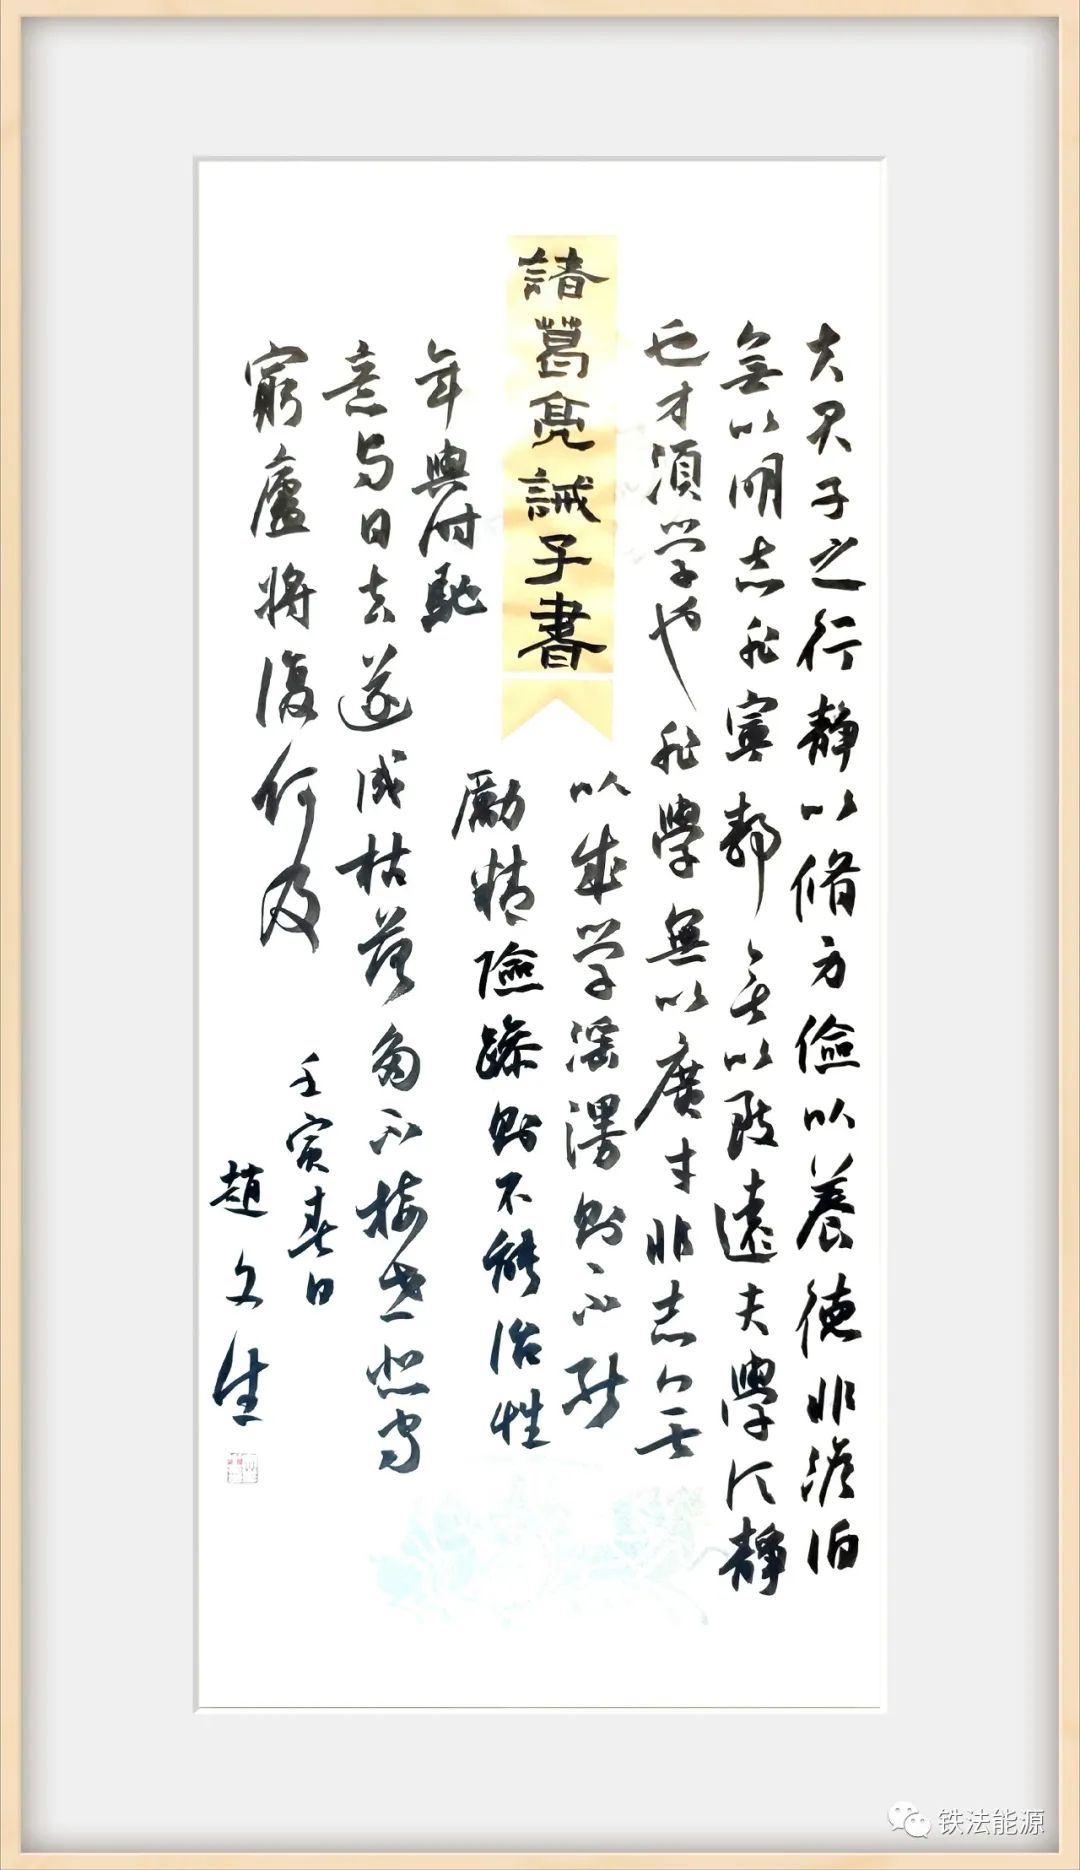 諸葛亮誡子書
夫君子之行靜以脩身儉以養德非澹泊
無以明志非寧靜無以致遠夫學須靜
也才須学也非學無以廣才非志無
以成学滛漫則不能
勵精險躁則不能治性
年與时馳
意与日去遂成枯落多不接世悲守
窮廬將復何及
壬寅春日
趙文
铁法能源